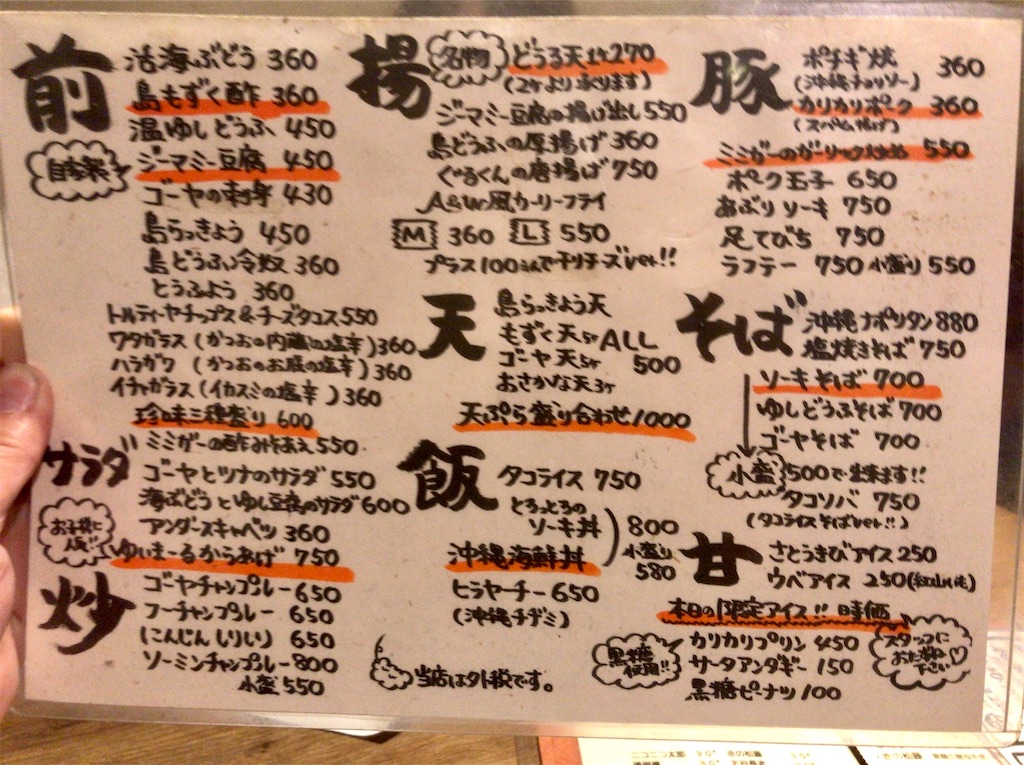 前
活海ぶどう 360
島もずく酢 360
温ゆしどうふ 450
自家製
ジーマミー豆腐 450
ゴーヤの刺身 430
島らっきょう 450
島どうふ冷奴 360
とうふよう 360
トルティーヤチップス&チーズタコス550
ワタガラス(かつおの内臓の塩辛)360
ハラガワ(かつおのお腹の塩辛)360
イチャガラス(イカスミの塩辛)360
珍味三種盛り 600
ミミガーの酢みそあえ 550
サラダ
ゴーヤとツナのサラダ 550
海ぶどうとゆし豆腐のサラダ600
アンダースキャベツ 360
お子様に
人気!!
ゆいまーるからあげ 750
炒
ゴーヤチャンプルー650
フーチャンプルー 650
にんじんしりしり 650
ソーミンチャンプルー800
小盛 550
揚
名物
どぅる天1ケ270
(2ケより承ります)
ジーマミー豆腐の揚げ出し550
島どうふの厚揚げ 360
ぐるくんの唐揚げ 750
A&W風カーリーフライ
M 360 L 550
プラス100えんでチリチーズver!!
天
島らっきょう天
もずく天5ケ ALL
ゴーヤ天5ケ 500
おさかな天3ケ
天ぷら盛り合わせ1000
飯
タコライス 750
とろっとろの
ソーキ丼
沖縄海鮮丼
800
小盛り
580
ヒラヤーチー 650
(沖縄チヂミ)
当店は外税です。
豚
ポチギ焼 360
(沖縄チョリソー)
カリカリポーク 360
(スパム揚げ)
ミミガーのガーリック 550
ポーク玉子 650
あぶりソーキ 750
足てびち 750
ラフテー 750 小盛り 550
そば
沖縄ナポリタン880
塩焼きそば 750
ソーキそば 700
ゆしどうふそば700
ゴーヤそば 700
小盛 500で出来ます!!
タコソバ 750
(タコライスそばver!!)
甘
さとうきびアイス250
ウベアイス 250(紅山いも)
本日の限定アイス!! 時価
黒糖
使用!!
カリカリプリン 450
サーターアンダギー 150
黒糖ピーナツ 100
スタッフに
おたずね
下さい♡